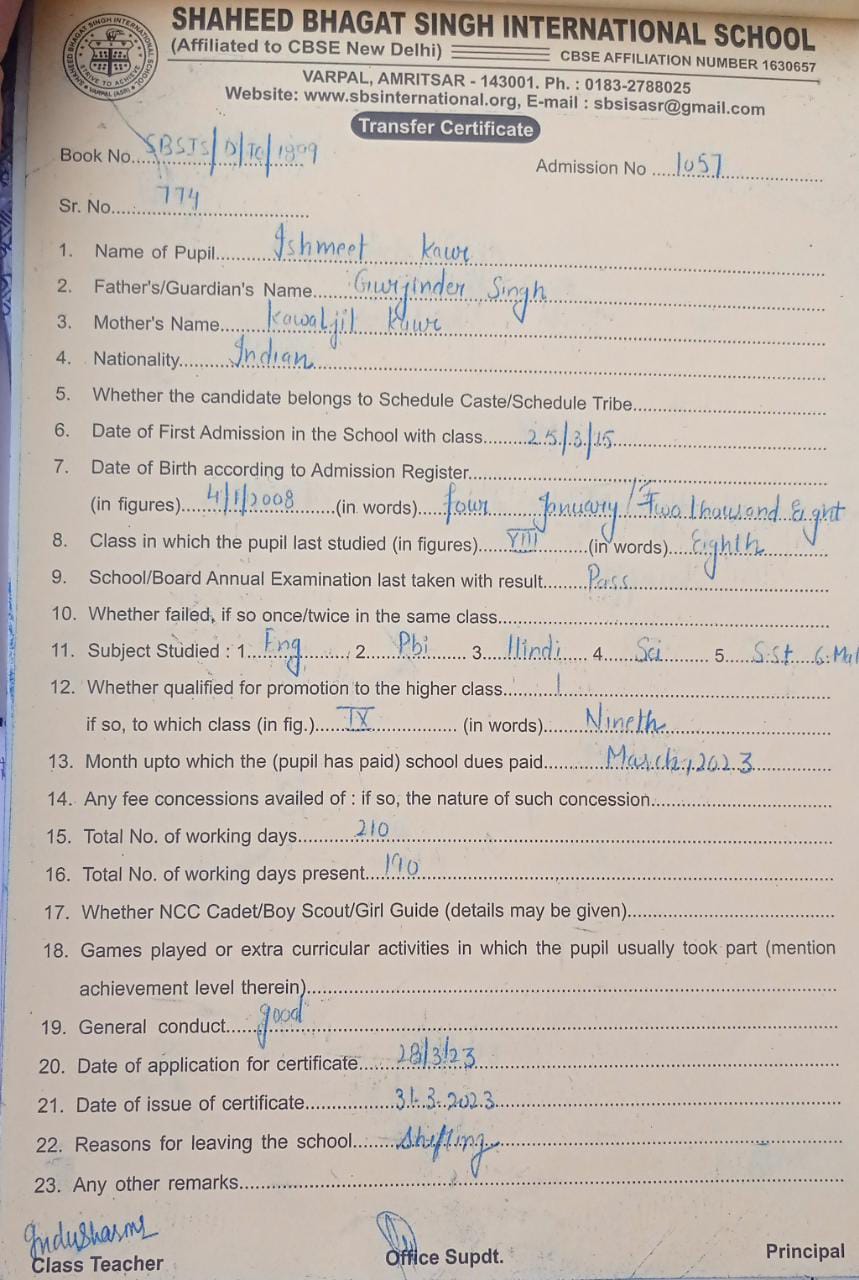 SHAHEED BHAGAT SINGH INTERNATIONAL SCHOOL
(Affiliated to CBSE New Delhi)
CBSE AFFILIATION NUMBER 1630657
SHAHEED BHAGAT SINGH INTERNATIONAL SCHOOL
STRIVE TO ACHIEVE
VARPAL (ASR)
VARPAL, AMRITSAR - 143001. Ph. : 0183-2788025
Website: www.sbsinternational.org, E-mail : sbsisasr@gmail.com
Transfer Certificate
Book No. SBSIS/D/TC/1899 Admission No 1057
Sr. No. 774
1. Name of Pupil Ishmeet Kaur
2. Father's/Guardian's Name Gurjinder Singh
3. Mother's Name Kawaljit Kaur
4. Nationality Indian
5. Whether the candidate belongs to Schedule Caste/Schedule Tribe
6. Date of First Admission in the School with class 25/3/15
7. Date of Birth according to Admission Register
(in figures) 4/1/2008 (in words) four January / Two thousand Eight
8. Class in which the pupil last studied (in figures) VIII (in words) Eighth
9. School/Board Annual Examination last taken with result Pass
10. Whether failed, if so once/twice in the same class
11. Subject Studied : 1. Eng 2. Pbi 3. Hindi 4. Sci 5. S.St 6.
12. Whether qualified for promotion to the higher class
if so, to which class (in fig.) IX (in words) Nineth
13. Month upto which the (pupil has paid) school dues paid March, 2023
14. Any fee concessions availed of : if so, the nature of such concession
15. Total No. of working days 210
16. Total No. of working days present 190
17. Whether NCC Cadet/Boy Scout/Girl Guide (details may be given)
18. Games played or extra curricular activities in which the pupil usually took part (mention
achievement level therein)
19. General conduct good
20. Date of application for certificate 28/3/23
21. Date of issue of certificate 31.3.2023
22. Reasons for leaving the school Shifting
23. Any other remarks
InduSharma
Class Teacher Office Supdt. Principal